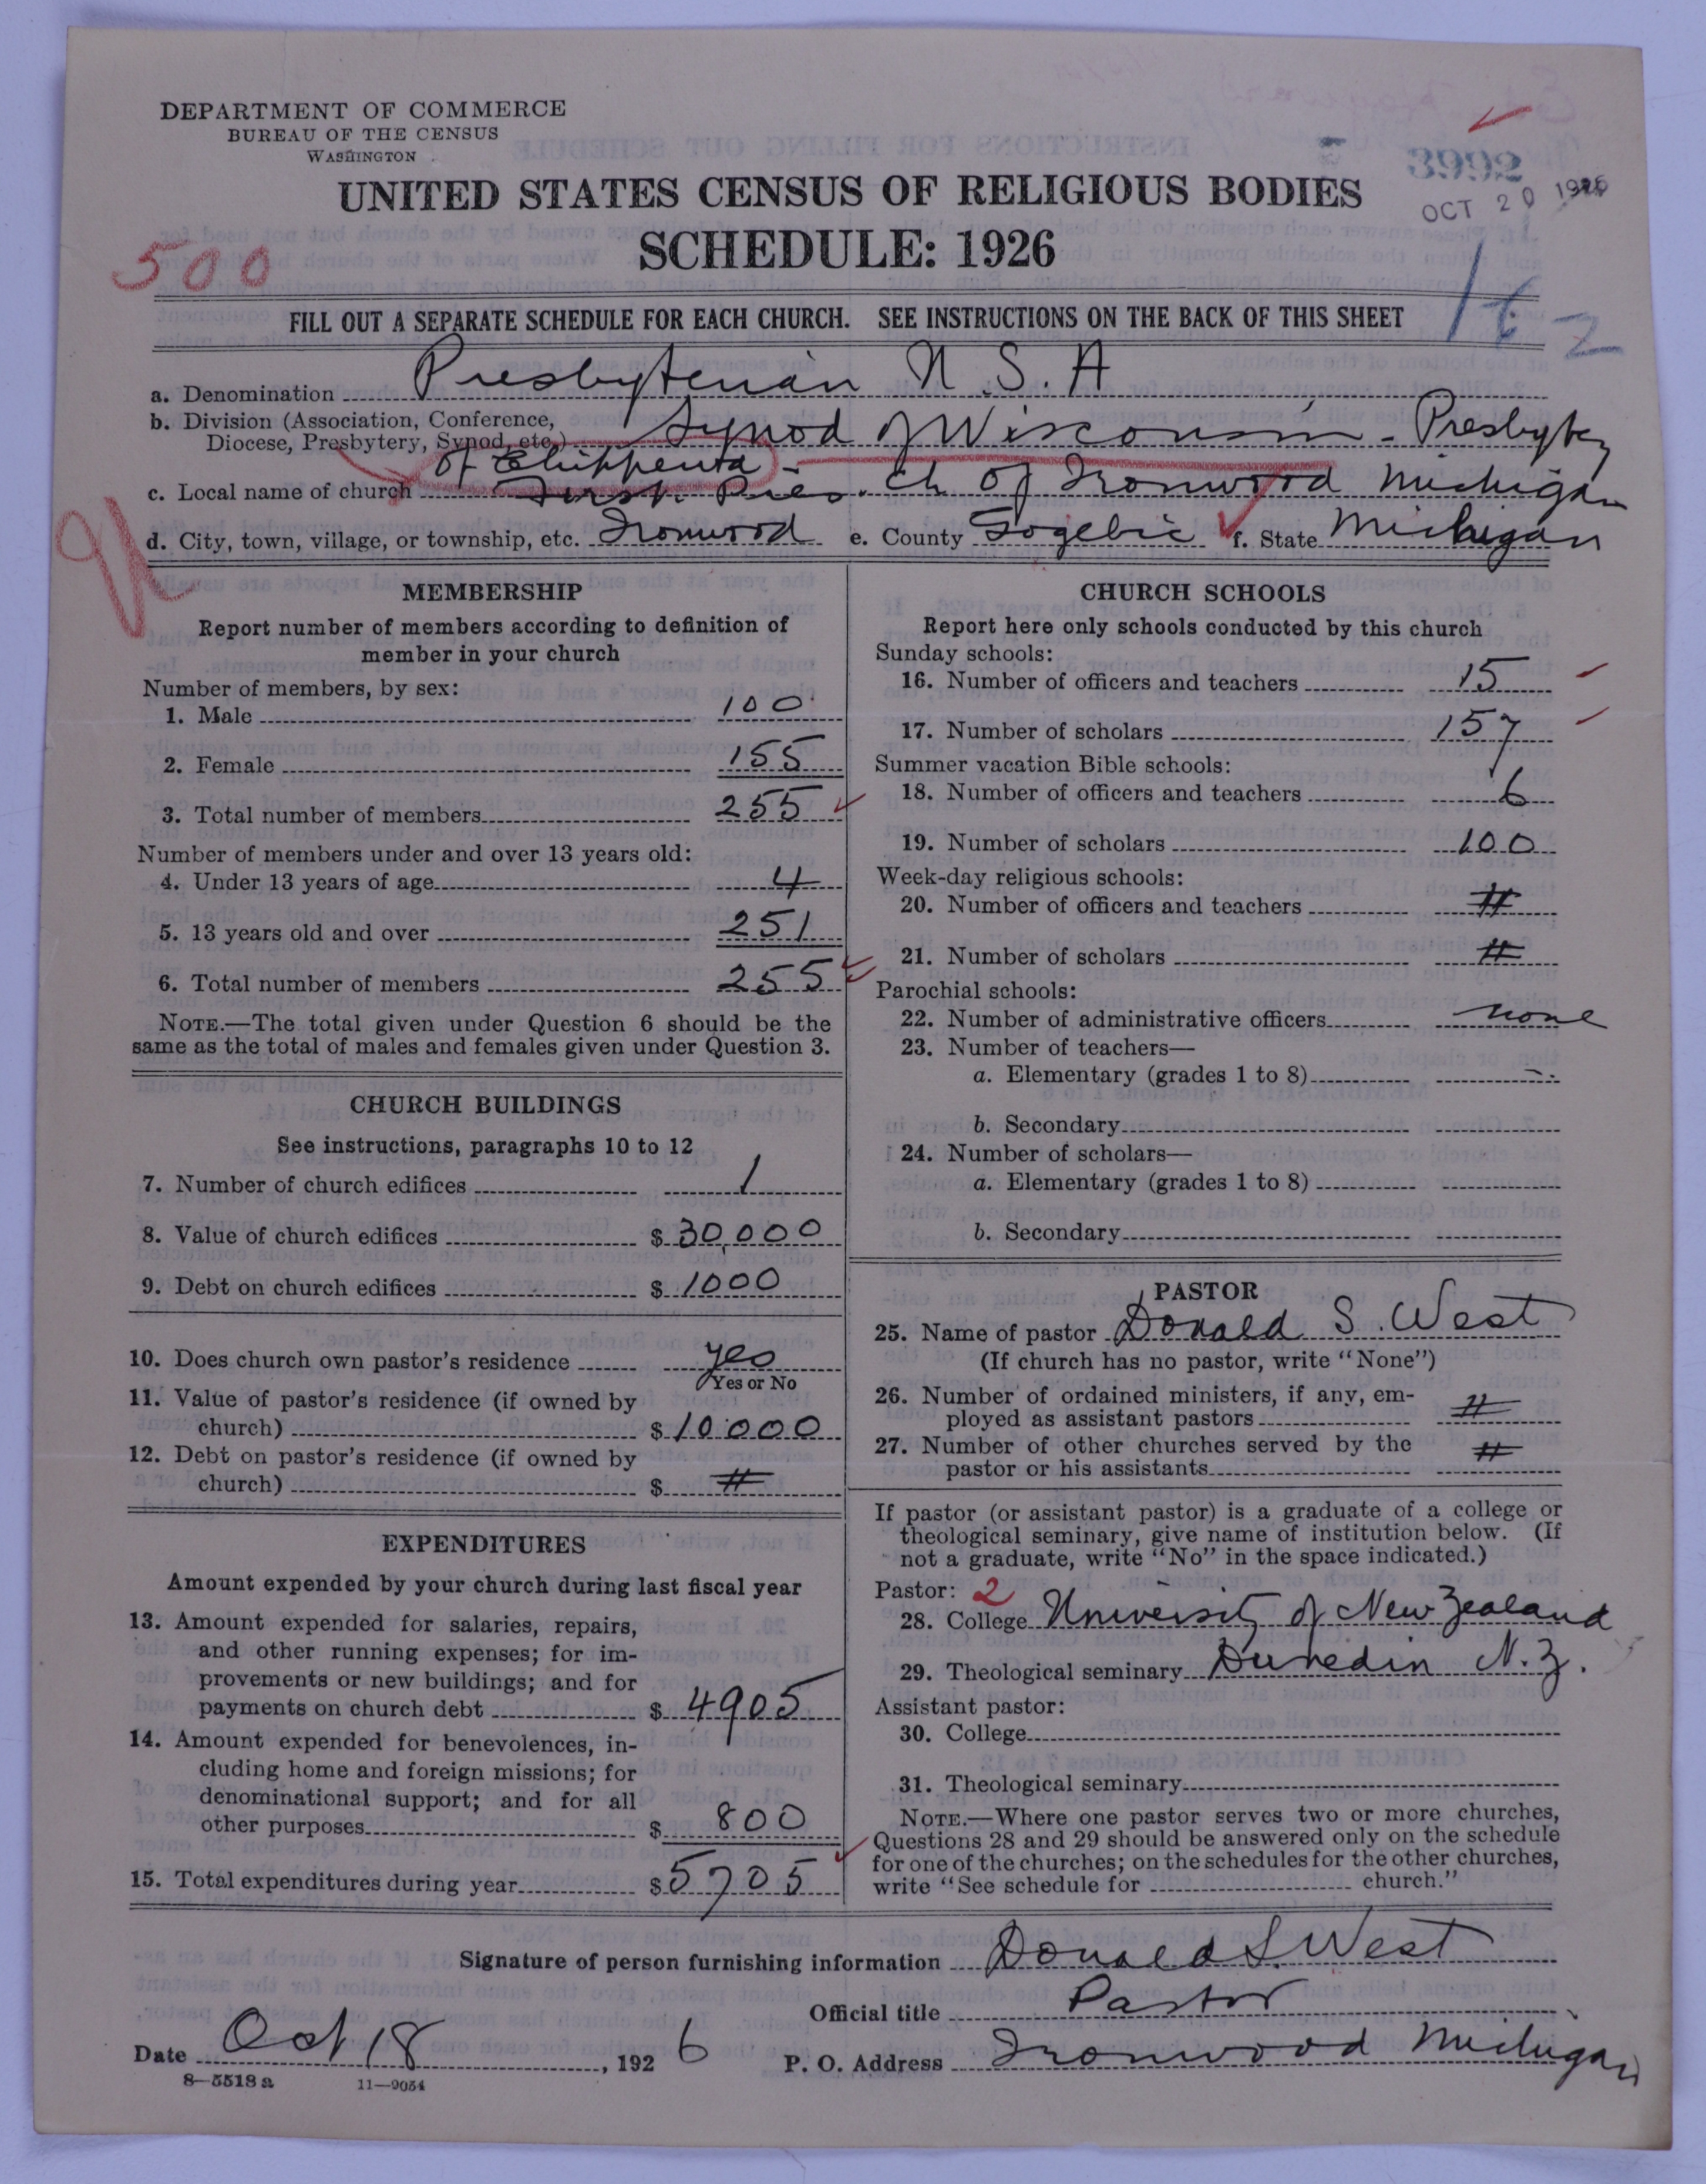 DEPARTMENT OF COMMERCE
BUREAU OF THE CENSUS
WASHINGTON
3992
OCT 20 1926
UNITED STATES CENSUS OF RELIGIOUS BODIES
SCHEDULE: 1926
500
FILL OUT A SEPARATE SCHEDULE FOR EACH CHURCH. SEE INSTRUCTIONS ON THE BACK OF THIS SHEET
a. Denomination Presbyterian U.S.A
b. Division (Association, Conference,
Diocese, Presbytery, Synod, etc.) Synod of Wisconsin - Presbytery
of Chippewa -
c. Local name of church First Pres. Ch of Ironwood Michigan
d. City, town, village, or township, etc. Ironwood e. County Gogebic f. State Michigan
MEMBERSHIP
Report number of members according to definition of
member in your church
Number of members, by sex:
1. Male 100
2. Female 155
3. Total number of members 255
Number of members under and over 13 years old:
4. Under 13 years of age 4
5. 13 years old and over 251
6. Total number of members 255
NOTE.—The total given under Question 6 should be the
same as the total of males and females given under Question 3.
CHURCH BUILDINGS
See instructions, paragraphs 10 to 12
7. Number of church edifices 1
8. Value of church edifices $ 30,000
9. Debt on church edifices $ 1000
10. Does church own pastor's residence yes
Yes or No
11. Value of pastor's residence (if owned by
church) $ 10000
12. Debt on pastor's residence (if owned by
church) $ #
EXPENDITURES
Amount expended by your church during last fiscal year
13. Amount expended for salaries, repairs,
and other running expenses; for im-
provements or new buildings; and for
payments on church debt $ 4905
14. Amount expended for benevolences, in-
cluding home and foreign missions; for
denominational support; and for all
other purposes $ 800
15. Total expenditures during year $ 5705
CHURCH SCHOOLS
Report here only schools conducted by this church
Sunday schools:
16. Number of officers and teachers 15
17. Number of scholars 157
Summer vacation Bible schools:
18. Number of officers and teachers 6
19. Number of scholars 100
Week-day religious schools:
20. Number of officers and teachers #
21. Number of scholars #
Parochial schools:
22. Number of administrative officers none
23. Number of teachers—
a. Elementary (grades 1 to 8)
b. Secondary
24. Number of scholars—
a. Elementary (grades 1 to 8)
b. Secondary
PASTOR
25. Name of pastor Donald S. West
(If church has no pastor, write "None")
26. Number of ordained ministers, if any, em-
ployed as assistant pastors #
27. Number of other churches served by the
pastor or his assistants #
If pastor (or assistant pastor) is a graduate of a college or
theological seminary, give name of institution below. (If
not a graduate, write "No" in the space indicated.)
Pastor: 2
28. College University of New Zealand
29. Theological seminary Dunedin N.Z.
Assistant pastor:
30. College
31. Theological seminary
NOTE.—Where one pastor serves two or more churches,
Questions 28 and 29 should be answered only on the schedule
for one of the churches; on the schedules for the other churches,
write "See schedule for church."
Signature of person furnishing information Donald S. West
Official title Pastor
Date Oct 18, 1926 P. O. Address Ironwood Michigan
8—5518 a 11—9054